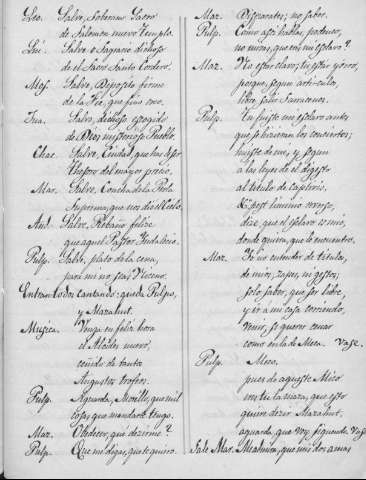 Leo. Salve, Soberano Sacro
de Salomon nuevo Templo.
Lui. Salve o Sagrario dichoso
de el Señor Santo Cordero.
Mos. Salve, Deposito firme
de la Fe, que fino creo.
Jua. Salve, dichoso escogido
de Dios, misterioso Pueblo.
Chac. Salve, Ciudad, que has
thesoro del mayor precio.
Mar. Salve, Concha de la Perla
Suprema, que nos dio el Cielo.
Ant. Salve, Rebaño felice
que aquel Pastor
Pulp. Salve, plato de la cena,
para mi no seas Viceno.
Entran todos cantando; queda Pulpo,
y Mazahut.
Musica. Venga en felice hora
el Alcides nuevo,
ceñido de tantos
Augustos trofeos.
Pulp. Aguarda, Morillo, que mil
cosas que mandarte tengo.
Maz. Obedecer, que dezirme?
Pulp. Que me digas, que te quiero.
Maz. Disparates; no saber.
Pulp. Como assi hablas, podenco,
no miras, que eres mi esclavo?
Maz. No estar claro; tu estar y otro,
porque segun articulo,
libro salir Sarracenos.
Pulp. Tu fuiste mi esclavo antes
que se hicieran los conciertos;
huiste de mi, y segun
a las leyes de el digesto
al titulo de captivis,
Et post liminio reverso,
dize, que el esclavo es mio,
donde quiera, que le encuentro.
Maz. Yo no entender de titulos,
de mios, zapes, ni gestos;
solo saber, que ser libre,
y ir a mi casa corriendo,
venir, si querer cenar
como en la de Meca. Vase.
Pulp. Meca.
pues de aqueste Meco
me tu la raza, que esto
quiere dezir Mazahut,
aguarda, que voy siguiendo. Vase
Sale Mar. Mealmira, que mis dos amas